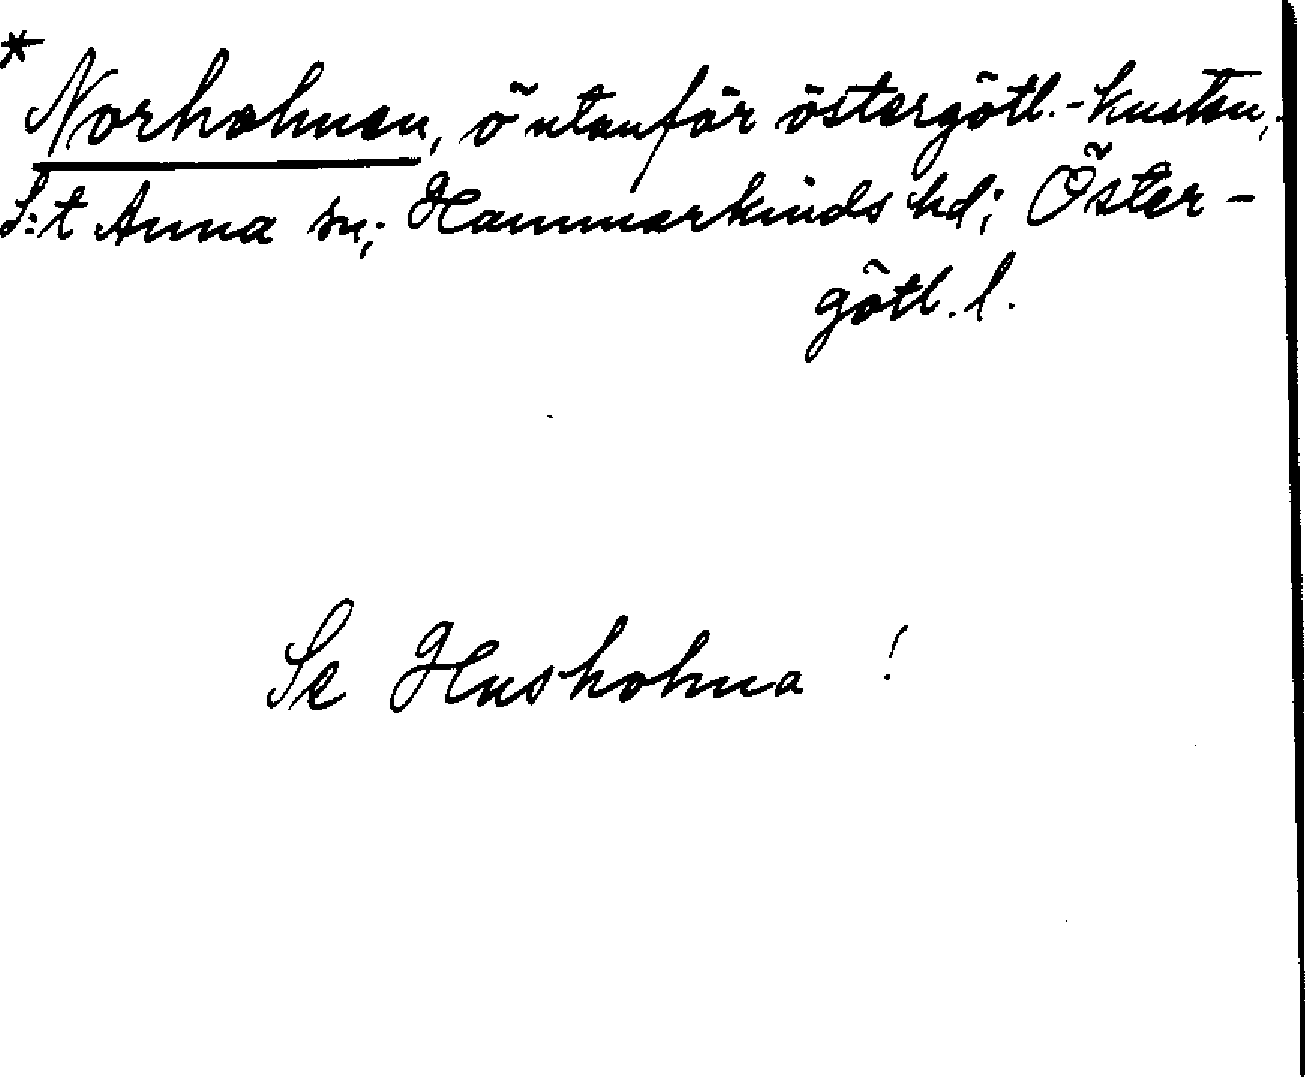 * Norholmen, ö utanför östergötl.-kusten,
S:t Anna sn; Hammarkinds hd; Öster-
götl. l.
Se Husholma !